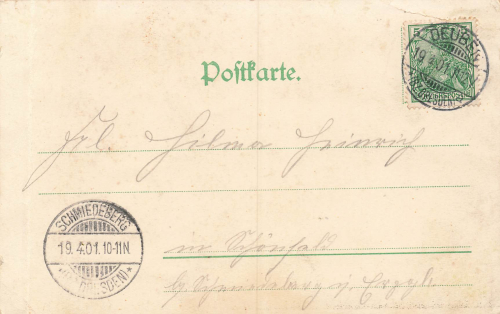 5
DEUBEN
19.4.01.10-
*(BZ. DRESDEN)*
Postkarte.
Frl. Hilma Heinrich
in Schönfeld
SCHMIEDEBERG
19.4.01.10-11N
*(BZ. DRESDEN)*